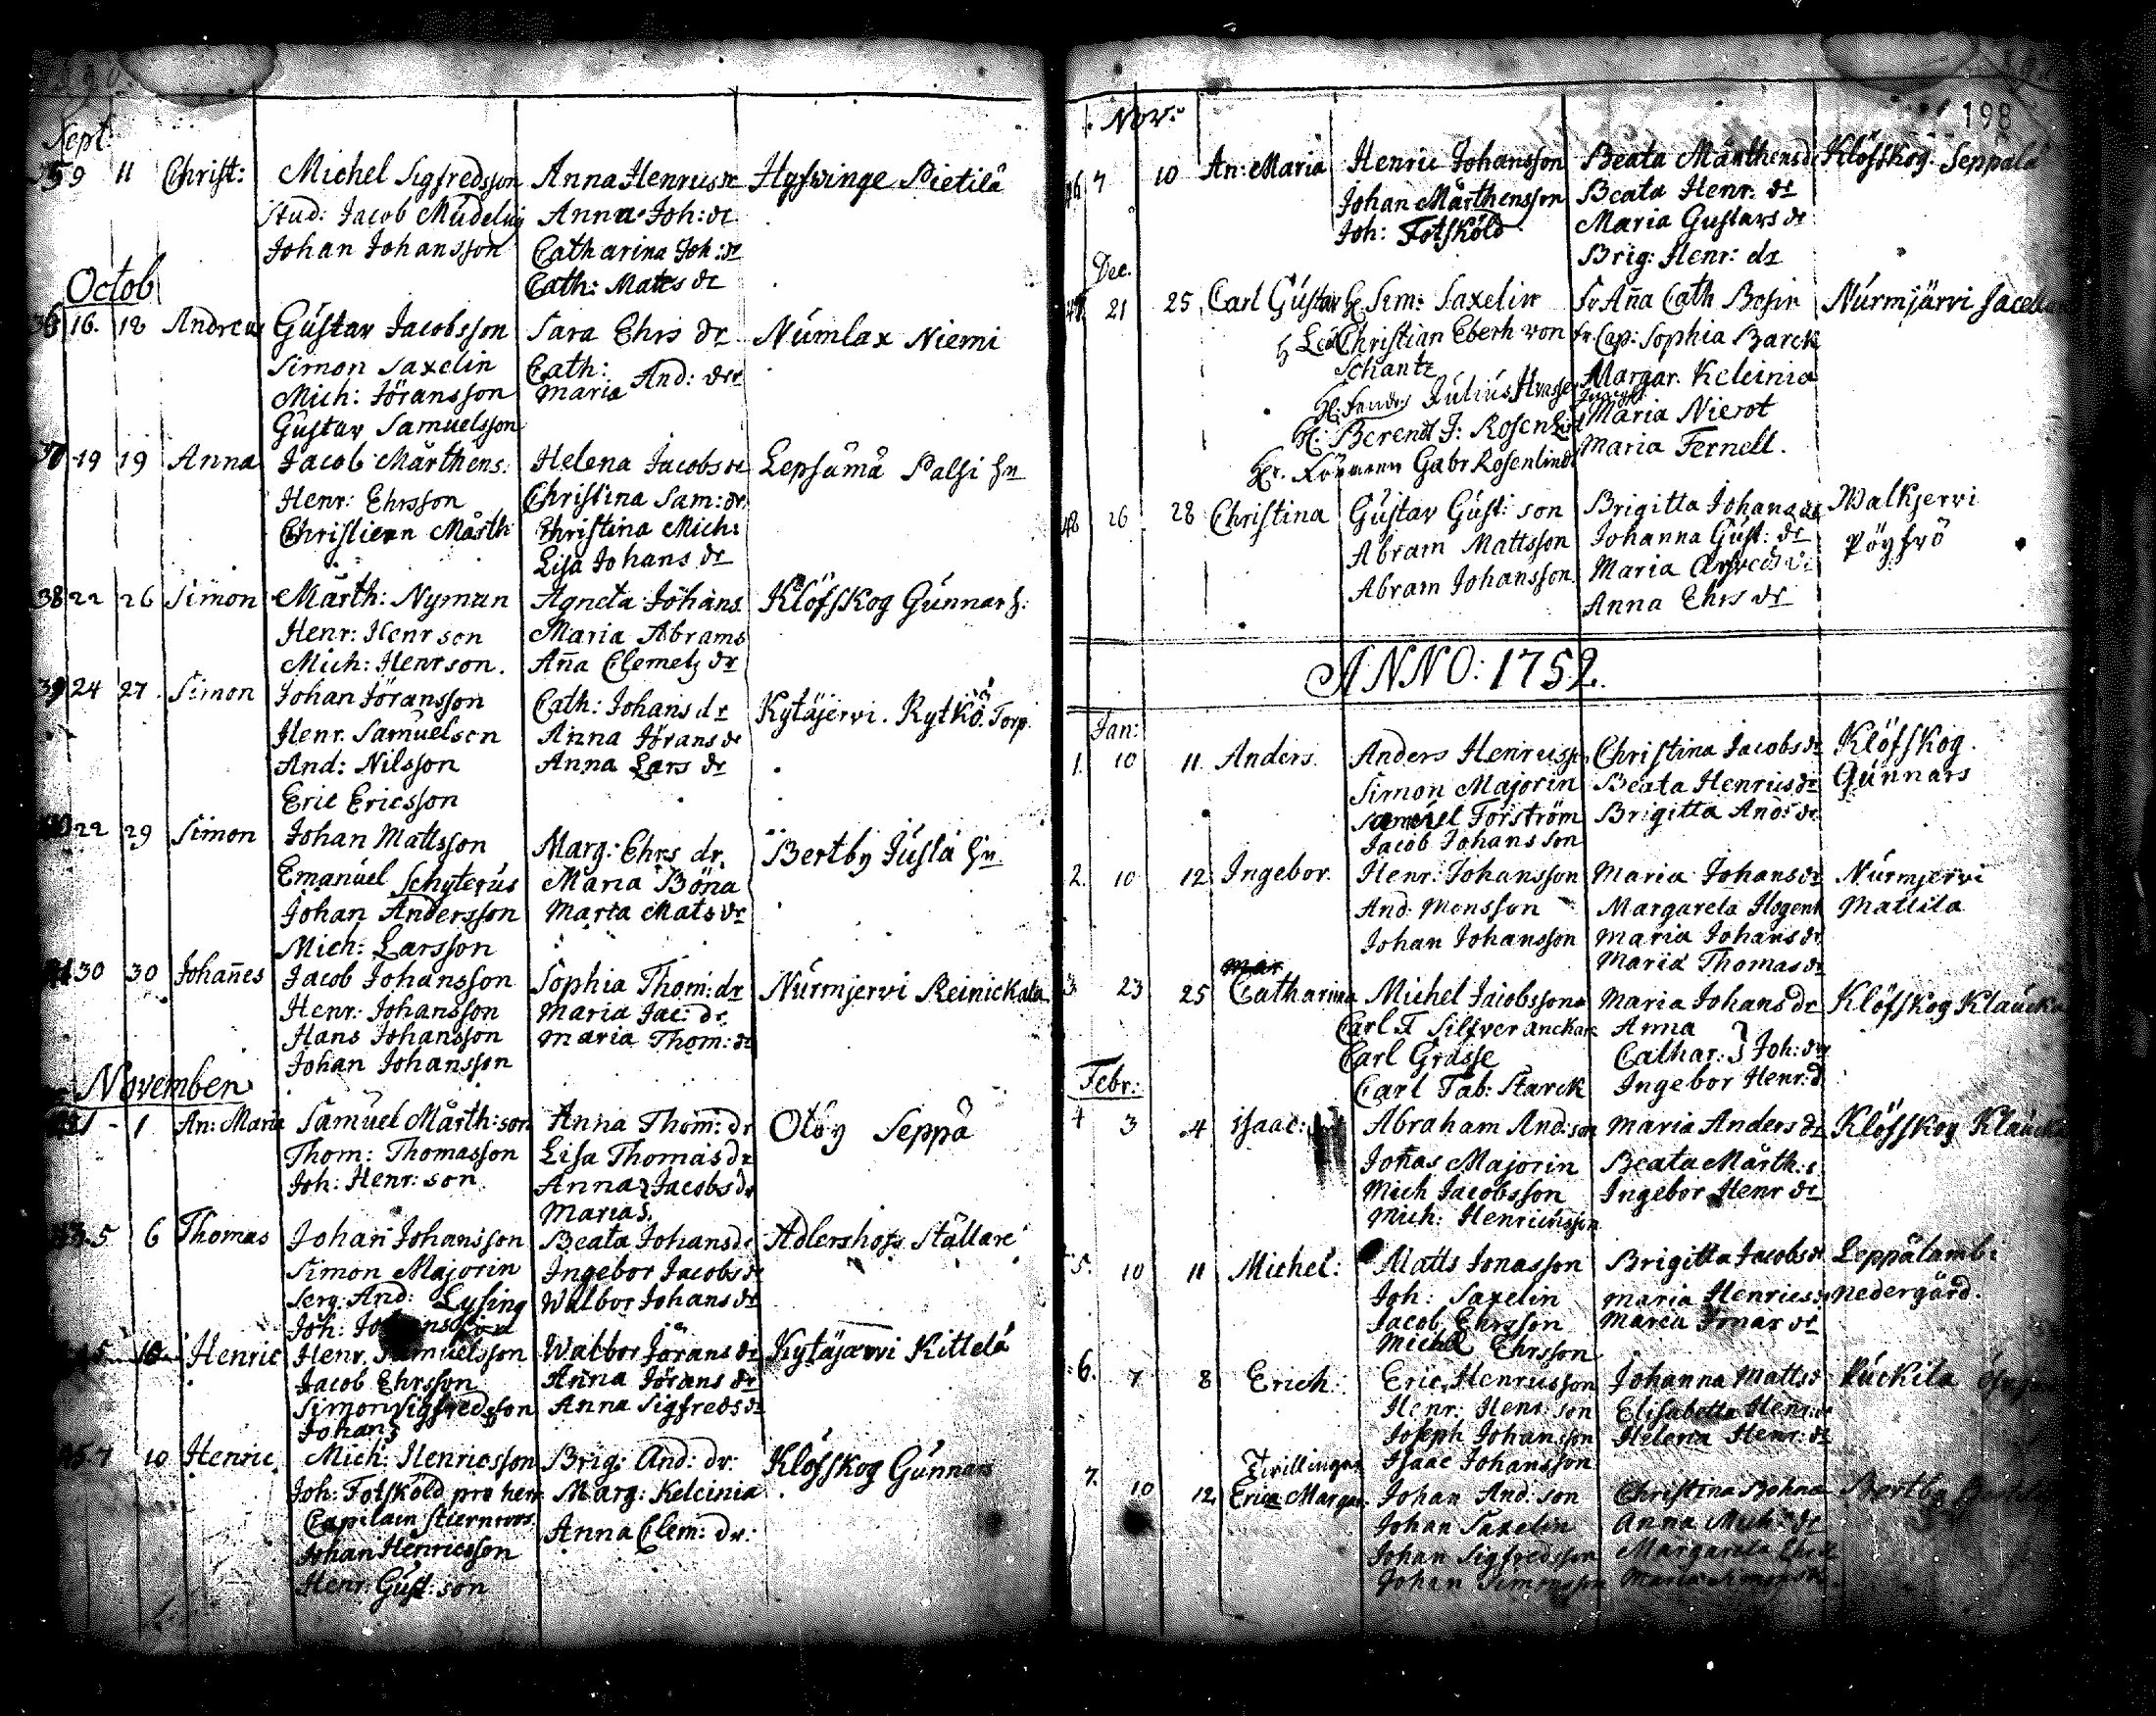 Sept:
35 9 11 Christ: Michel Sigfredsson Anna Henrics dr Hyfvinge Pietilä
Stud: Jacob Mudelig Anna Joh: dr
Johan Johansson Catharina Joh: dr
Cath: Matts dr
Octob
36 16. 18 Andreas Gustav Jacobsson Sara Ehrs dr Numlax Niemi
Simon Saxelin Cath:
Mich: Jöransson Maria And: drr
Gustav Samuelsson
37 19 19 Anna Jacob Mårthens: Helena Jacobs dr Lepsämä Palhi
Henr: Ehrsson Christina Sam: dr
Christiern Mårth: Christina Mich:
Lisa Johans dr
38 22 26 Simon Mårth: Nyman Agneta Johans Klöfskog Gunnars
Henr: Henrson Maria Abrams
Mich: Henrson. Aña Clemets dr
39 24 27. Simon Johan Jöransson Cath: Johans dr Kytäjervi. Rytkö. Torp.
Henr. Samuelson Anna Jörans dr
And: Nilsson Anna Lars dr
Eric Ericsson
40 22 29 Simon Johan Mattsson Marg: Ehrs dr. Bertby Jusla
Emanuel Schyterus Maria Böna
Johan Andersson Marta Mats dr
Mich: Larsson
41 30 30 Johañes Jacob Johansson Sophia Thom: dr Nurmjervi Reinickala
Henr: Johansson Maria Jac: dr
Hans Johansson Maria Thom: dr
Johan Johansson
November
1 An: Maria Samuel Mårth: son Anna Thom: dr Olby Seppä
Thom: Thomasson Lisa Thomas dr
Joh: Henr: son Anna Jacobs dr
Maria
43. 5 6 Thomas Johan Johansson Beata Johans dr Adlershofs Stållare
Simon Majorin Ingebor Jacobs dr
Serg: And: Lysing Walbor Johans dr
Joh:
Henric Henr. Samuelsson Walbor Jörans dr Kytäjärvi Kittelä
Jacob Ehrsson Anna Jörans dr
Simon Sigfredsson Anna Sigfreds dr
Johan
45. 7 10 Henric Mich: Henricsson Brig: And: dr: Klöfskog Gunnars
Joh: Fotsköld pro herr Marg: Kelcinia
Capitain Stiernvos. Anna Clem: dr:
Johan Henricsson
Henr. Gust: son
198
Nov:
46 7 10 An: Maria Henric Johansson Beata Mårthens dr Klöfskog Seppälä
Johan Mårthensson Beata Henr: dr
Joh: Fotsköld Maria Gustavs dr
Brig: Henr: dr
Dec.
47 21 25. Carl Gustav Sim: Saxelin Aña Cath Nurmjärvi
Christian Eberh von Cap: Sophia Barck
Schantz Margar. Keleinia
Julius Maria Nierot
H: Berendt J: Maria Fernell.
Gabr Rosenlind
48 26 28 Christina Gustav Gust: son Brigitta Johans dr Walkjervi
Abram Mattsson Johanna Gust: dr Pöyfrö
Abram Johansson Maria
Anna Ehrs dr
ANNO: 1752.
Jan:
1. 10 11. Anders. Anders Henricsson Christina Jacobs dr Klöfskog.
Simon Majorin Beata Henrics dr Gunnars
Samuel Forström Brigitta And: dr
Jacob Johansson
2. 10 12 Ingebor. Henr: Johansson Maria Johans dr Nurmjervi
And: Monsson Margareta Mattila
Johan Johansson Maria Johans dr
Maria Thomas dr
mar
3. 23 25 Catharina Michel Jacobsson Maria Johans dr Klöfskog Klaucka
Carl F Silfveranckar Anna
Carl Grasse Cathar: Joh: drr
Carl Fab: Starck Ingebor Henr: d
Febr:
4 3 4 Isaac: Abraham And: son Maria Anders dr Klöfskog Klaucka
Jonas Majorin Beata Mårth:
Mich Jacobsson Ingebor Henr dr
Mich: Henricsson
5. 10 11 Michel: Matts Jonasson Brigitta Jacobs dr Leppälambi
Joh: Saxelin Maria Henrics dr Nedergård.
Jacob Ehrsson Maria
Michel Ehrsson
6. 7 8 Erich: Eric Henricsson Johanna Matts d Puckila
Henr: Henr: son Elisabetta Henr: dr
Joseph Johansson Helena Henr: dr
Isaac Johansson
Tvillingar
7. 10 12. Erica Margar. Johan And: son Christina Bertby
Johan Saxelin Anna Mich: dr
Johan Sigfredsson Margareta
Johan Simonsson Maria Simons dr